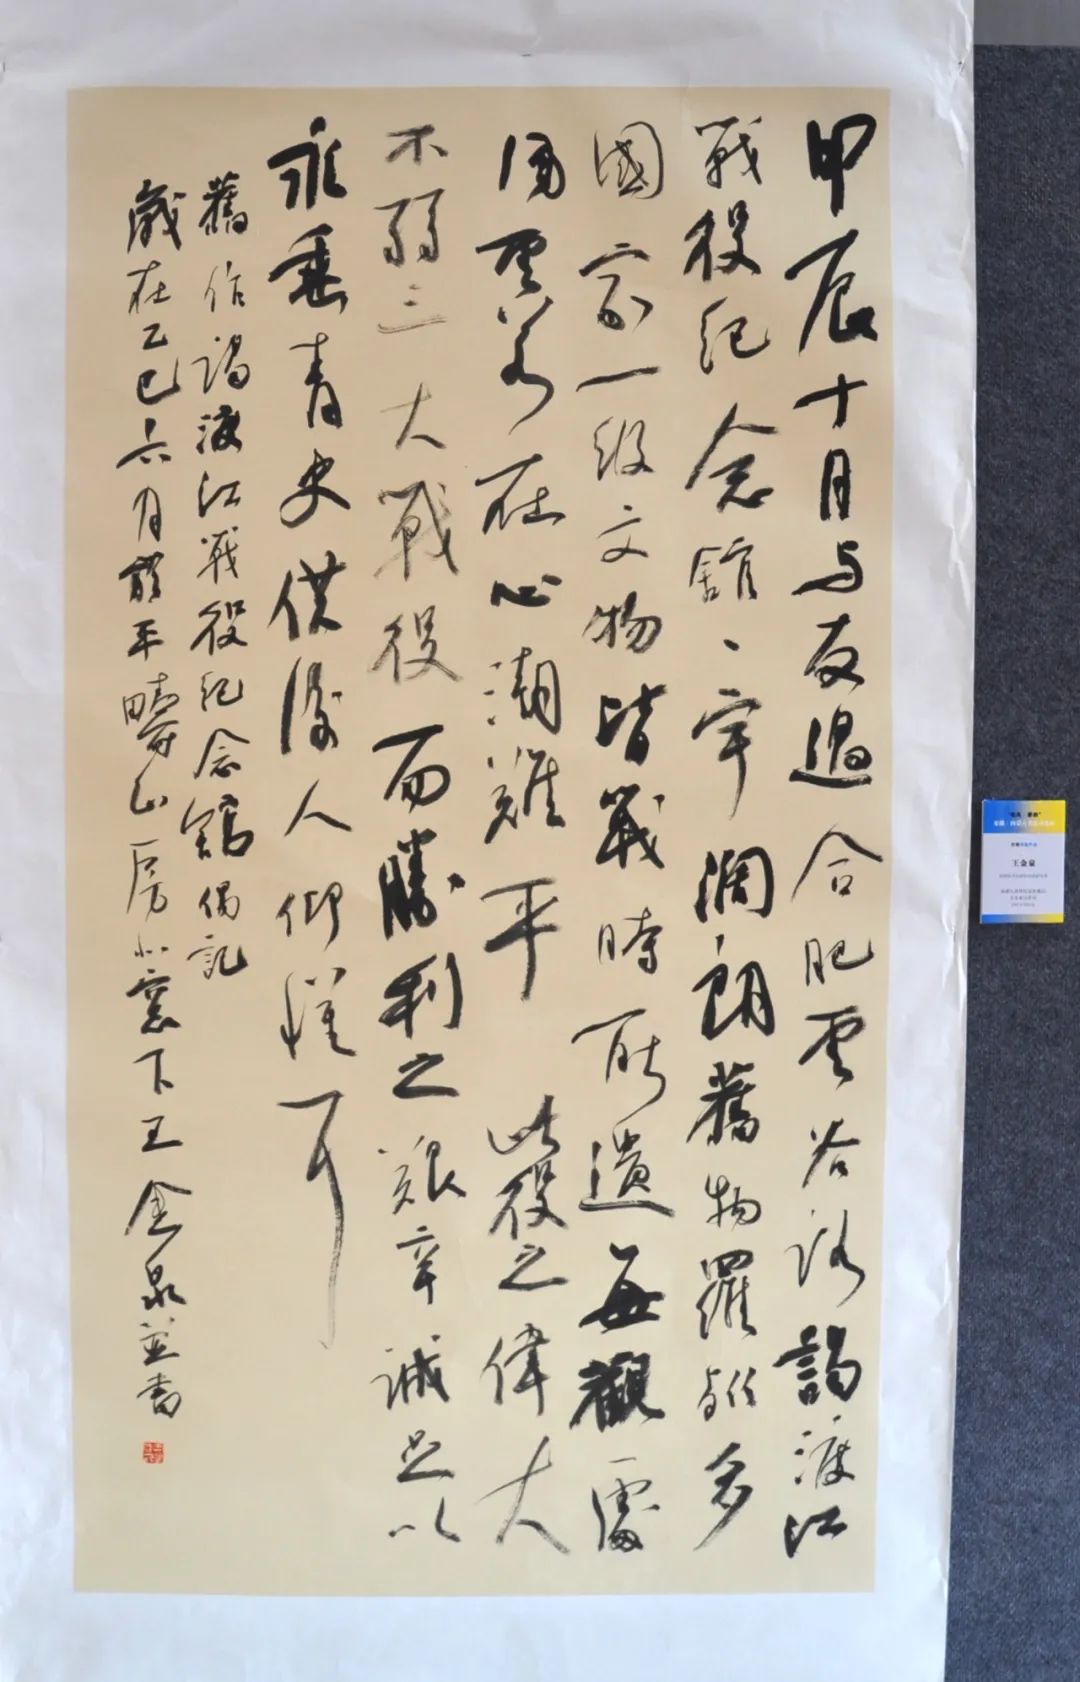 甲辰十月与友過合肥雲谷路謁渡江
戰役紀念館、宇濶朗舊物羅多
國家一級文物皆戰時所遺每觀處
風雲若在心潮難平 此役之偉大
不弱三大戰役而勝利之艱辛誠足以
永垂青史供後人仰耳
舊作謁渡江戰役紀念館偶記
歲在乙巳六月平疇山房北窗下王金泉並書
王金泉